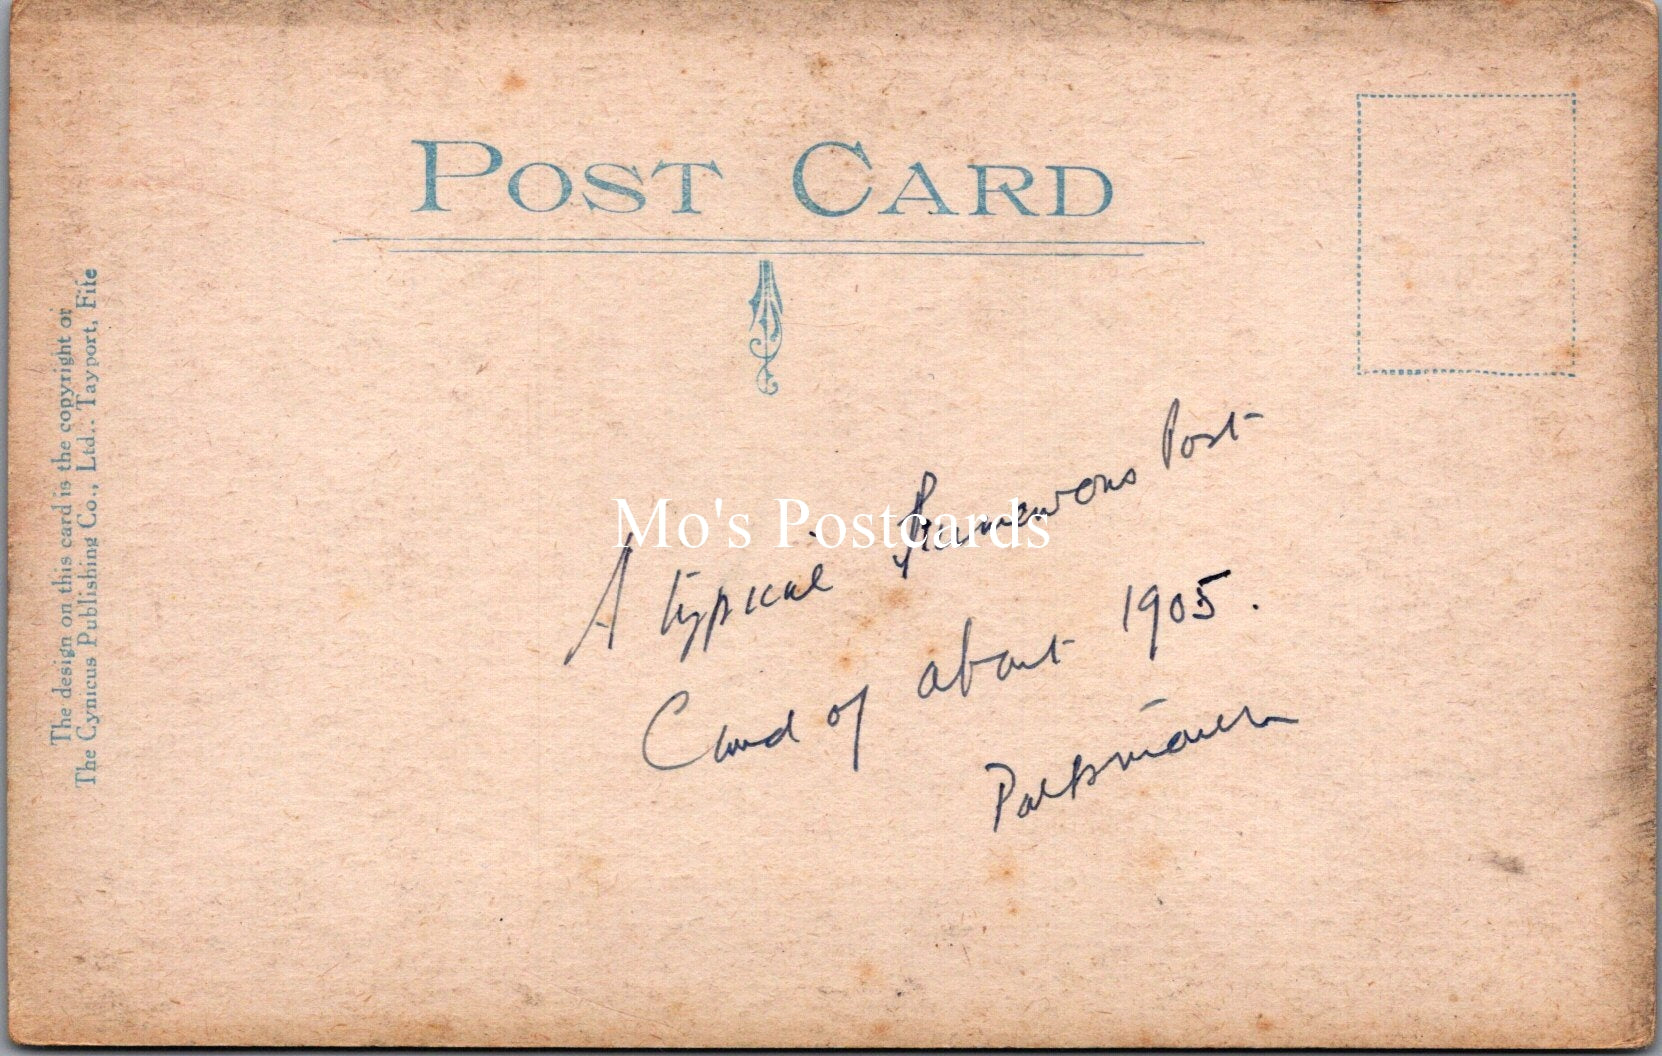 POST CARD
The design on this card is the copyright of
The Cynicus Publishing Co., Ltd.. Tayport, Fife
A typical Humerous Post
Card of about 1905.
Mo's Postcards